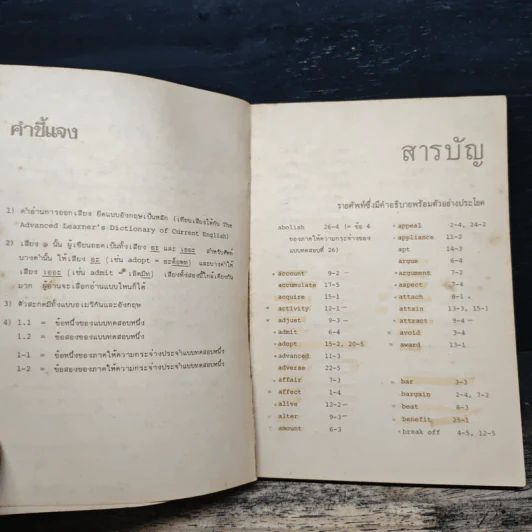 คำชี้แจง
1) คำอ่านการออกเสียง ยึดแบบอังกฤษเป็นหลัก (เทียบเสียงได้กับ The
Advanced Learner's Dictionary of Current English)
2) เสียง ə นั้น ผู้เขียนถอดเป็นทั้งเสียง อะ และ เออะ สำหรับศัพท์
บางคำนั้น ให้เสียง อะ (เช่น adopt = อะด็อพท) และบางคำใช้
เสียง เออะ (เช่น admit = เอิดมิท) เสียงทั้งสองนี้ใกล้เคียงกัน
มาก ผู้อ่านจะเลือกอ่านแบบไหนก็ได้
3) ตัวสะกดมีทั้งแบบอเมริกันและอังกฤษ
4) 1.1 = ข้อหนึ่งของแบบทดสอบหนึ่ง
1.2 = ข้อสองของแบบทดสอบหนึ่ง
1-1 = ข้อหนึ่งของภาคให้ความกระจ่างประจำแบบทดสอบหนึ่ง
1-2 = ข้อสองของภาคให้ความกระจ่างประจำแบบทดสอบหนึ่ง
สารบัญ
รายศัพท์ซึ่งมีคำอธิบายพร้อมตัวอย่างประโยค
abolish 26-4 (= ข้อ 4
ของภาคให้ความกระจ่างของ
แบบทดสอบที่ 26)
account 9-2
accumulate 17-5
acquire 15-1
activity 12-1
adjust 9-3
admit 6-4
adopt 15-2, 20-5
advanced 11-3
adverse 22-5
affair 7-3
affect 1-4
alive 12-2
alter 9-3
amount 6-3
appeal 2-4, 24-2
appliance 11-2
apt 14-3
argue 6-8
argument 7-2
aspect 7-4
attach 8-1
attain 13-3, 15-1
attract 9-4
avoid 3-4
award 13-1
bar 3-3
bargain 2-4, 7-2
beat 8-3
benefit 25-1
break off 4-5, 12-5